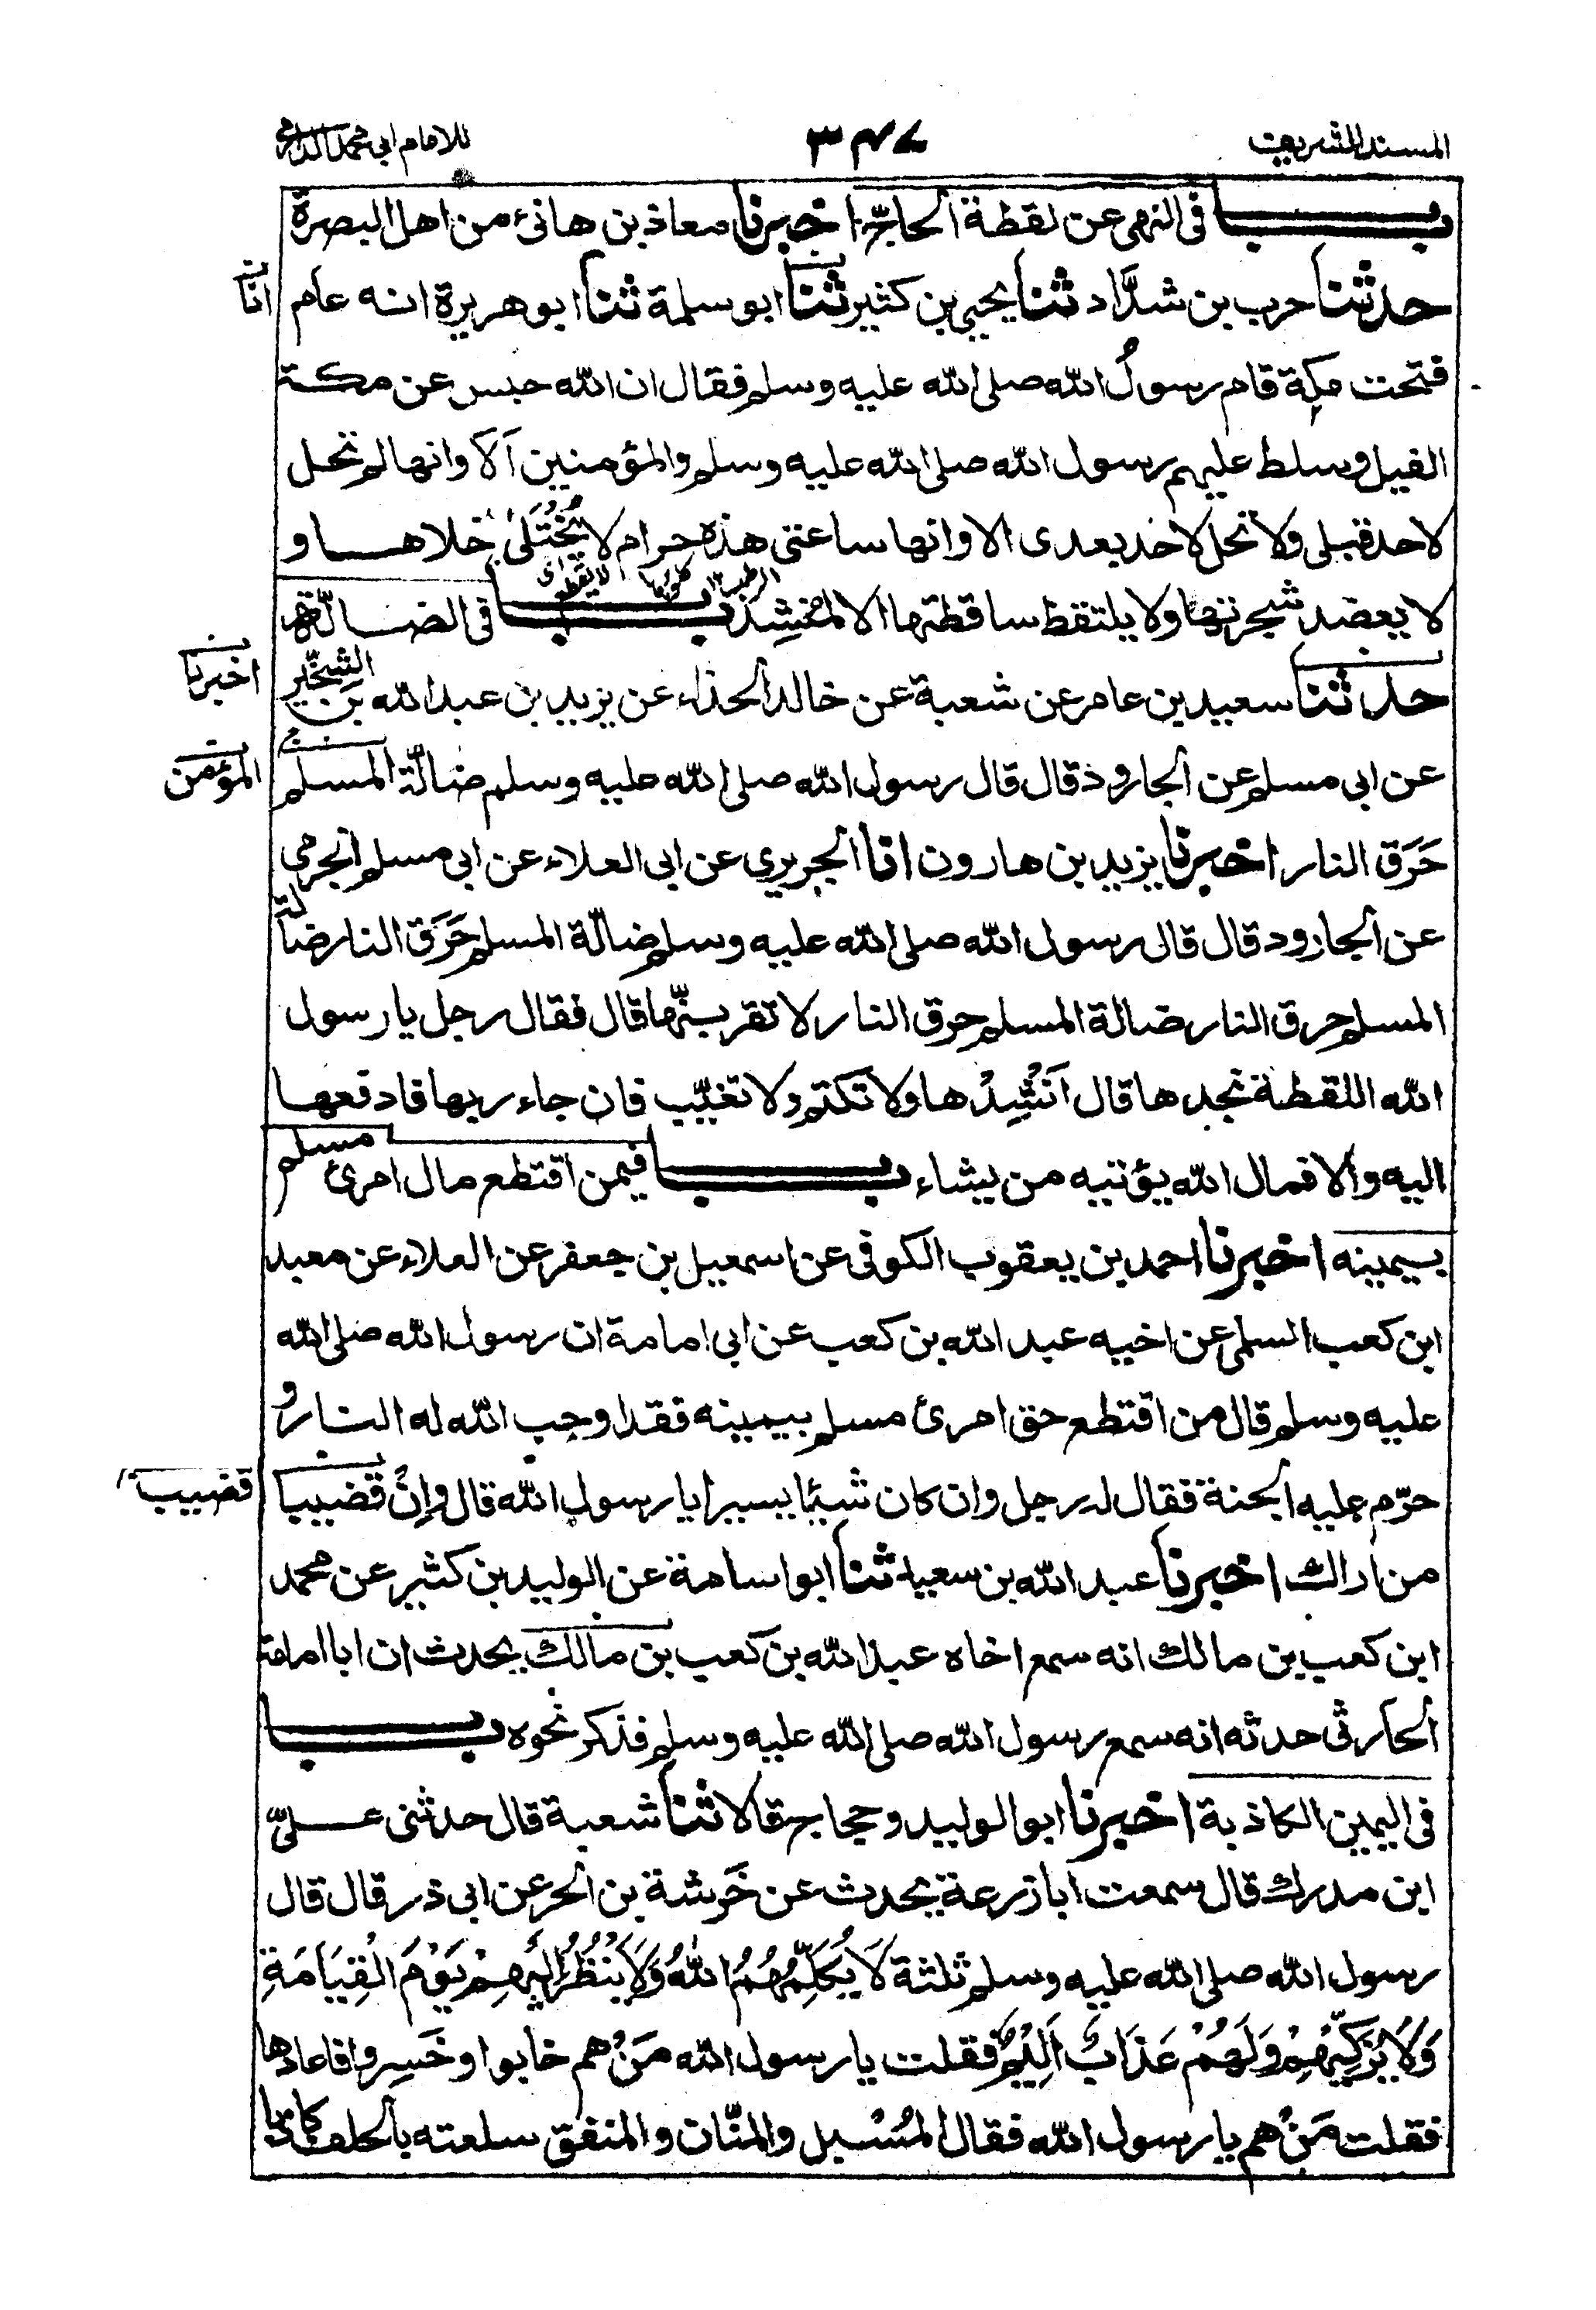 المسند الشريف ٣٤٧ للامام ابي محمد الدارمي
بــاب فى النهى عن لقطة الحاجّ اخبرنا معاذ بن هانئ من اهل البصرة
حدثنا حرب بن شدَّاد ثنا يحيى بن كثير ثنا ابو سلمة ثنا ابو هريرة انه عام
انا
فتحت مكة قام رسولُ الله صلى الله عليه وسلم فقال ان الله حبس عن مكة
الفيل وسلط عليهم رسول الله صلى الله عليه وسلم والمؤمنين آلا وانها لم تحل
لاحد قبلى ولا تحل لاحد بعدى الا وانها ساعتى هذه حرام لا يُخْتَلىٰ خلاهــا و
الرطب كلؤها لا يقطع اى
لا يعضد شجرتها ولا يلتقط ساقطتها الا لمُنشِد بــاب فى الضــالّة
حدثنا سعيد بن عامر عن شعبة عن خالد الحذاء عن يزيد بن عبد الله بن الشخّير
اخبرنا
عن ابى مسلم عن الجارود قال قال رسول الله صلى الله عليه وسلم ضالّة المسلم
المؤمن
حَرَق النار اخبرنا يزيد بن هارون انا الجريري عن ابى العلاء عن ابى مسلم الجرمى
عن الجارود قال قال رسول الله صلى الله عليه وسلم ضالّة المسلم حَرَق النار ضالة
المسلم حرق النار ضالة المسلم حرق النار لا تقربنّها قال فقال رجل يا رسول
الله اللقطة نجدها قال اَنْشِدْها ولا تكتم ولا تغيّب فان جاء ربها فادفعها
اليه والا فمال الله يؤتيه من يشاء بــاب فيمن اقتطع مال امرئ مسلم
بيمينه اخبرنا احمد بن يعقوب الكوفى عن اسمعيل بن جعفر عن العلاء عن معبد
ابن كعب السلمى عن اخيه عبد الله بن كعب عن ابى امامة ان رسول الله صلى الله
عليه وسلم قال من اقتطع حق امرئ مسلم بيمينه فقد اوجب الله له النار و
حرّم عليه الجنة فقال له رجل وان كان شيئا يسيرا يا رسول الله قال وإنْ قضيبا
قضيب
من اراك اخبرنا عبد الله بن سعيد ثنا ابو اسامة عن الوليد بن كثير عن محمد
ابن كعب بن مالك انه سمع اخاه عبد الله بن كعب بن مالك يحدث ان ابا امامة
الحارثى حدثه انه سمع رسول الله صلى الله عليه وسلم فذكر نحوه بــاب
فى اليمين الكاذبة اخبرنا ابو الوليد وحجاج قالا ثنا شعبة قال حدثنى عــلىّ
ابن مدرك قال سمعت ابا زرعة يحدث عن خَرشة بن الحر عن ابى ذر قال قال
رسول الله صلى الله عليه وسلم ثلثة لَا يُكَلِّمُهُمُ اللهُ وَلَا يَنْظُرُ اِلَيْهِمْ يَوْمَ الْقِيَامَةِ
وَلَا يُزَكِّيْهِمْ وَلَهُمْ عَذَابٌ اَلِيْمٌ فقلت يا رسول الله مَنْ هم خابوا وخَسِروا فاعادها
فقلت مَنْ هم يا رسول الله فقال المُسْبل والمنّان والمنفق سلعته بالحلف كاذبا